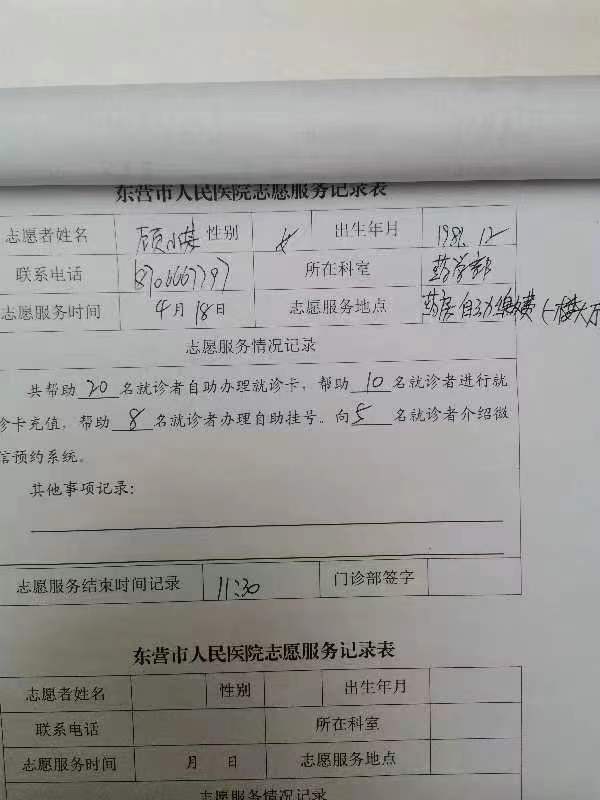 东营市人民医院志愿服务记录表
志愿者姓名 顾 性别 女 出生年月 1981.12
联系电话 所在科室 药学部
志愿服务时间 4月18日 志愿服务地点 药房自动缴费(一楼大厅
志愿服务情况记录
共帮助20名就诊者自助办理就诊卡，帮助10名就诊者进行就
诊卡充值，帮助8名就诊者办理自助挂号。向5名就诊者介绍微
信预约系统。
其他事项记录：
志愿服务结束时间记录 11:30 门诊部签字
东营市人民医院志愿服务记录表
志愿者姓名 性别 出生年月
联系电话 所在科室
志愿服务时间 月 日 志愿服务地点
志愿服务情况记录